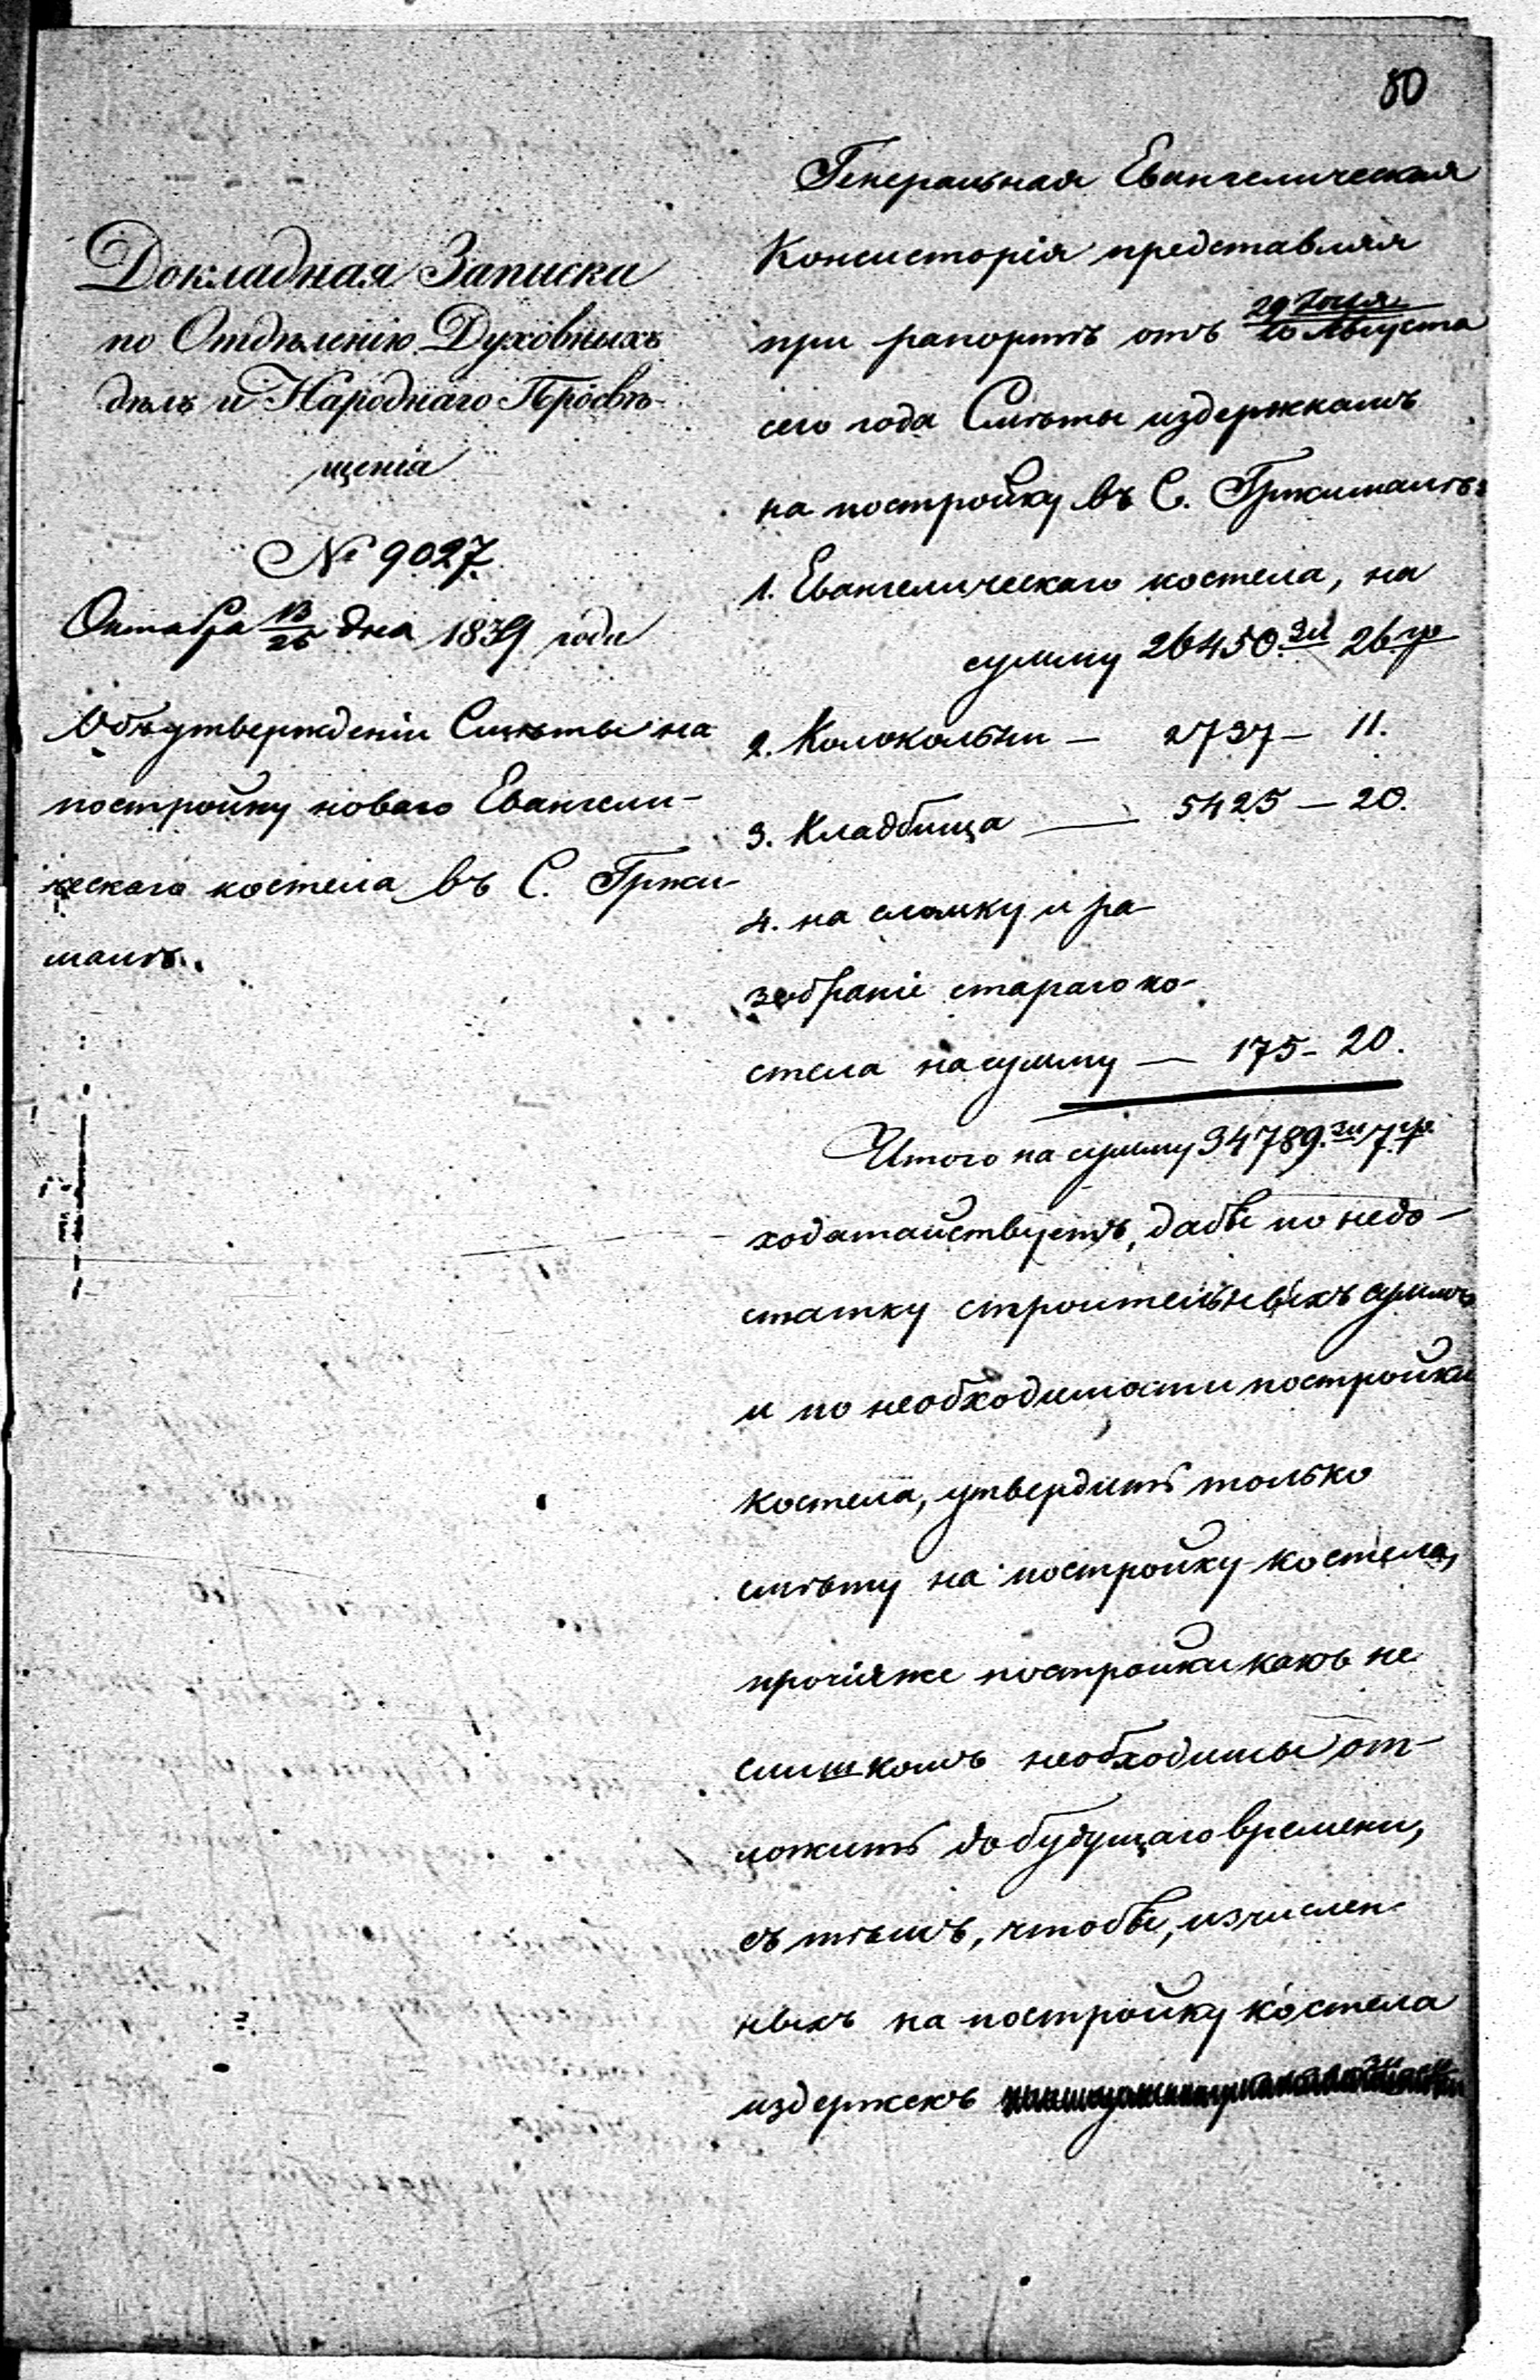 80
Докладная Записка
по Отдѣленію Духовныхъ
дѣлъ и Народнаго Просвѣ-
щенія
№ 9027.
Октября 13/25 дня 1839 года
Объ утвержденіи Смѣты на
постройку новаго Евангели-
ческаго костела въ С. Гржи-
малѣ.
Генеральная Евангелическая
Консисторія представляя
при рапортѣ отъ 29 Іюля/10 Августа
сего года Смѣты издержкамъ
на постройку въ С. Гржималѣ:
1. Евангелическаго костела, на
сумму 26450 зл 26 гр
2. Колокольни — 2737 — 11.
3. Кладбища — 5425 — 20.
4. на сломку и ра-
зобраніе стараго ко-
стела на сумму — 175 - 20.
Итого на сумму 34789 зл 7 гр.
ходатайствуетъ, дабы по недо-
статку строительныхъ суммъ
и по необходимости постройки
костела, утвердить только
смѣту на постройку костела,
прочія же постройки какъ не
слишкомъ необходимы от-
ложить до будущаго времени,
съ тѣмъ, чтобы, изчислен-
ныхъ на постройку костела
издержекъ